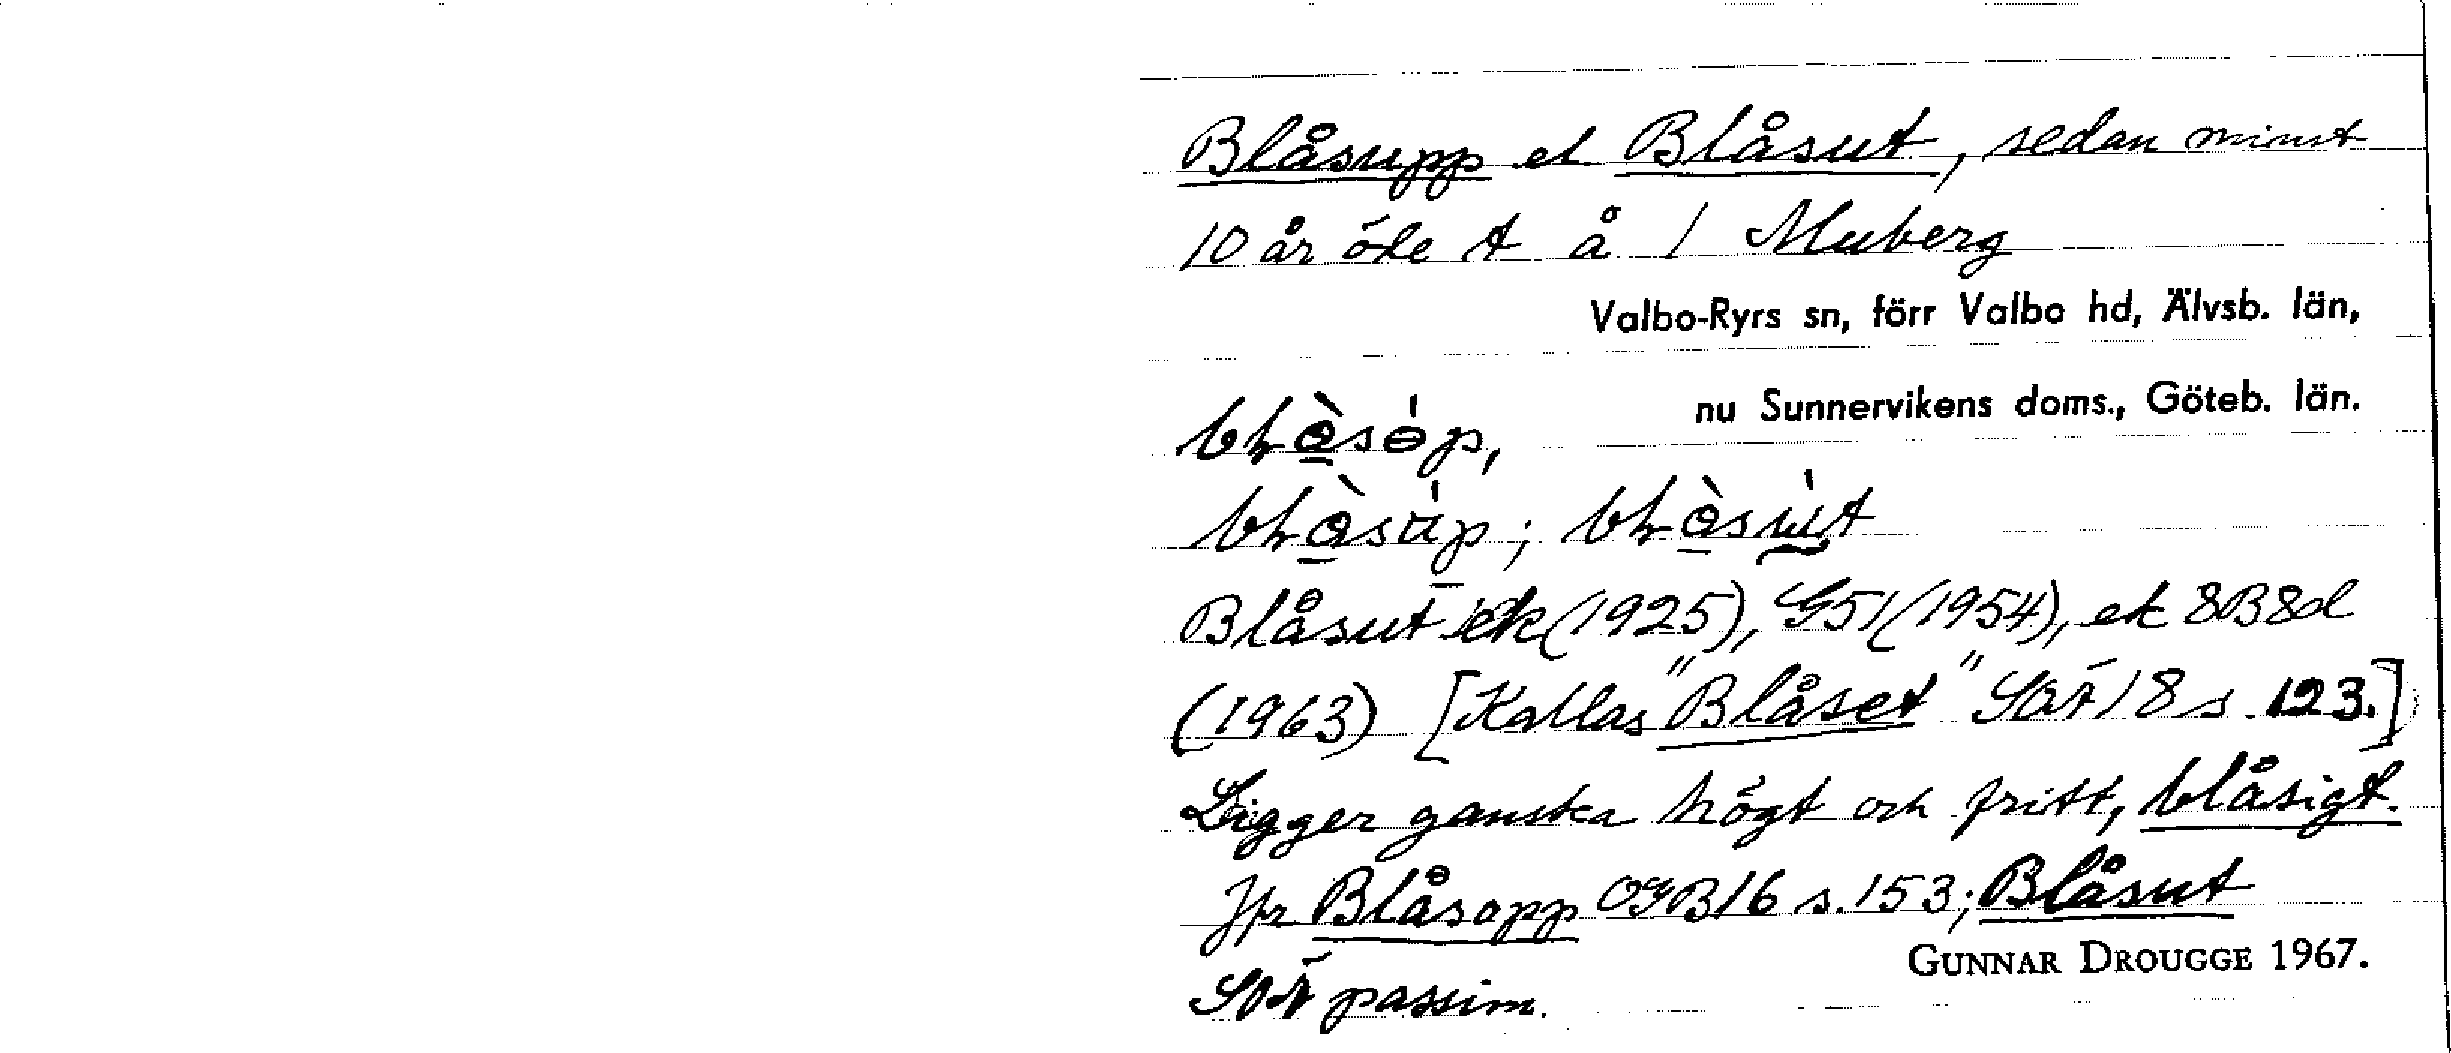 Blåsupp el Blåsut, sedan minst
10 år öde t å 1 Muberg
Valbo-Ryrs sn, förr Valbo hd, Älvsb. län,
nu Sunnervikens doms., Göteb. län.
Blåsut (1925), G51 (1954), ek 8B8d
(1963) [Kallas "Blåset" SOÄ 18 s. 123.]
Ligger ganska högt och fritt, blåsigt.
Jfr Blåsopp OGB 16 s. 153; Blåsut
SOÄ passim.
GUNNAR DROUGGE 1967.